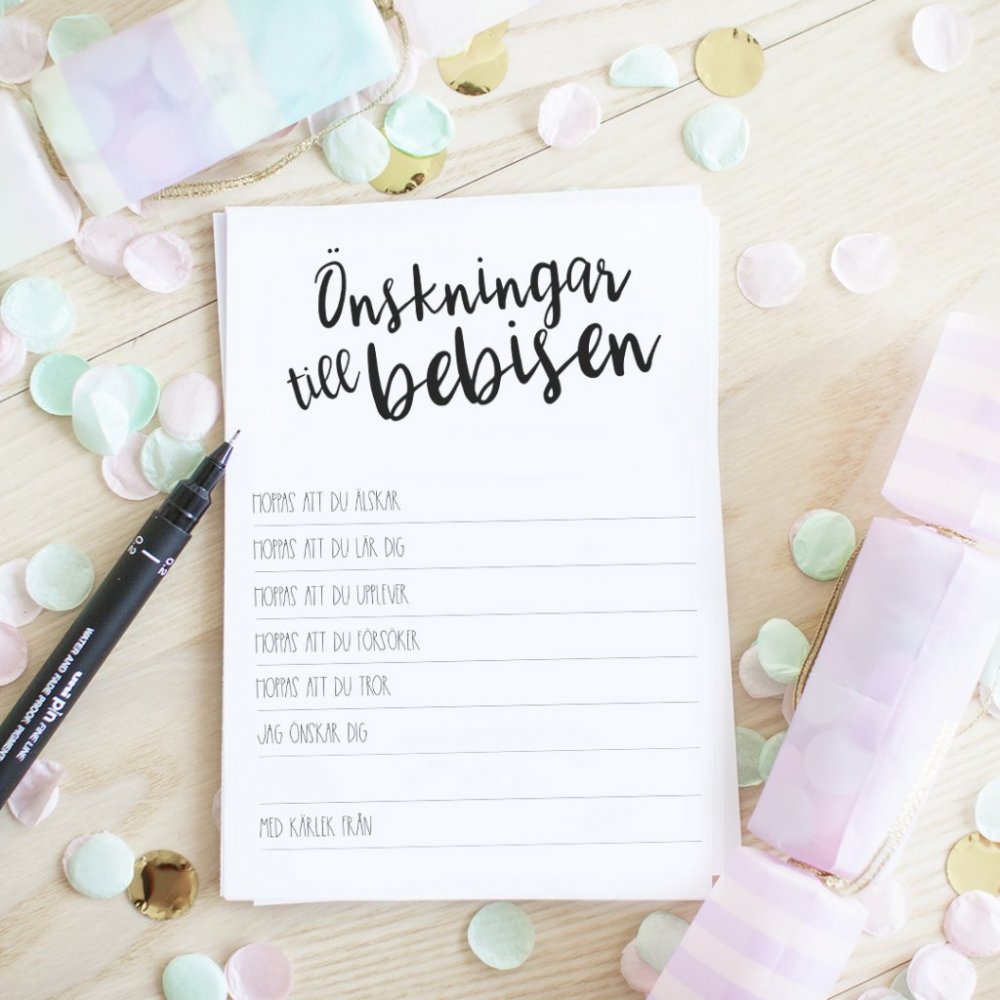 Önskningar
till bebisen
HOPPAS ATT DU ÄLSKAR
HOPPAS ATT DU LÄR DIG
HOPPAS ATT DU UPPLEVER
HOPPAS ATT DU FÖRSÖKER
HOPPAS ATT DU TROR
JAG ÖNSKAR DIG
MED KÄRLEK FRÅN
0.2
0.2
uni pin FINE LINE
WATER AND FADE PROOF PIGMENT